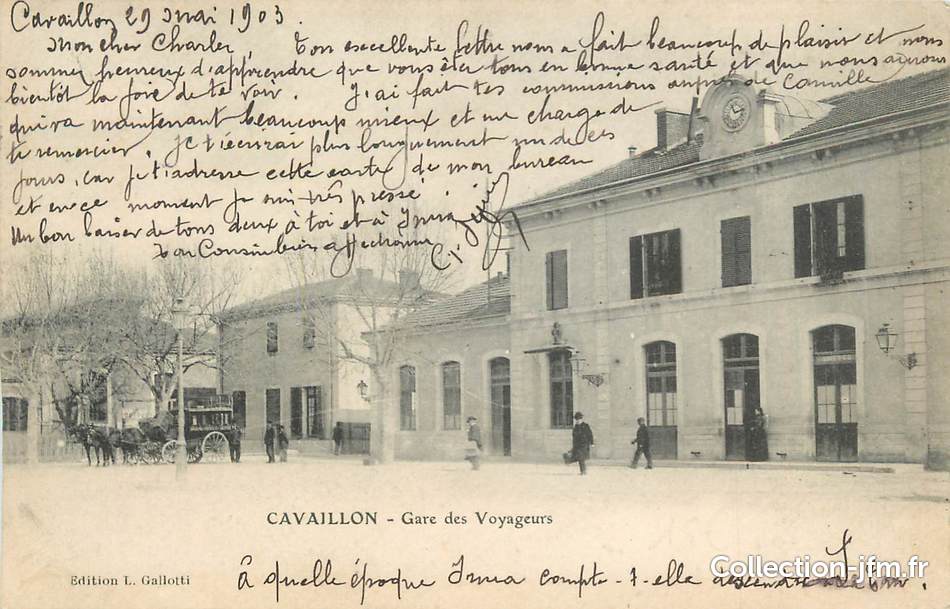 Cavaillon 29 mai 1903.
Mon cher Charles, Ton excellente lettre nous a fait beaucoup de plaisir et nous
sommes heureux d'apprendre que vous êtes tous en bonne santé et que nous aurons
bientôt la joie de te voir. J'ai fait tes commissions auprès de Camille
qui va maintenant beaucoup mieux et me charge de
te remercier. Je t'écrirai plus longuement un de ces
jours, car je t'adresse cette carte de mon bureau
et en ce moment je suis très pressé.
Un bon baiser de tous deux à toi et à Irma
Ton Cousin bien affectionné
CAVAILLON - Gare des Voyageurs
Edition L. Gallotti
à quelle époque Irma compte-t-elle
Collection-jfm.fr